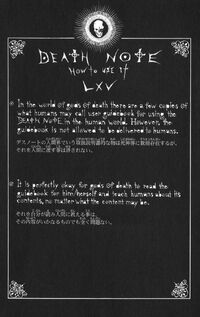 DEATH NOTE
HOW TO USE IT
LXV
In the world of gods of death there are a few copies of
what humans may call user guidebook for using the
DEATH NOTE in the human world. However, the
guidebook is not allowed to be delivered to humans.
デスノートの人間界でいう取扱説明書的な物は死神界に数冊存在するが、
それを人間に渡す事は許されない。
It is perfectly okay for gods of death to read the
guidebook for him/herself and teach humans about its
contents, no matter what the content may be.
それを自分が読み人間に教える事は、
その内容がいかなるものでも全く問題ない。